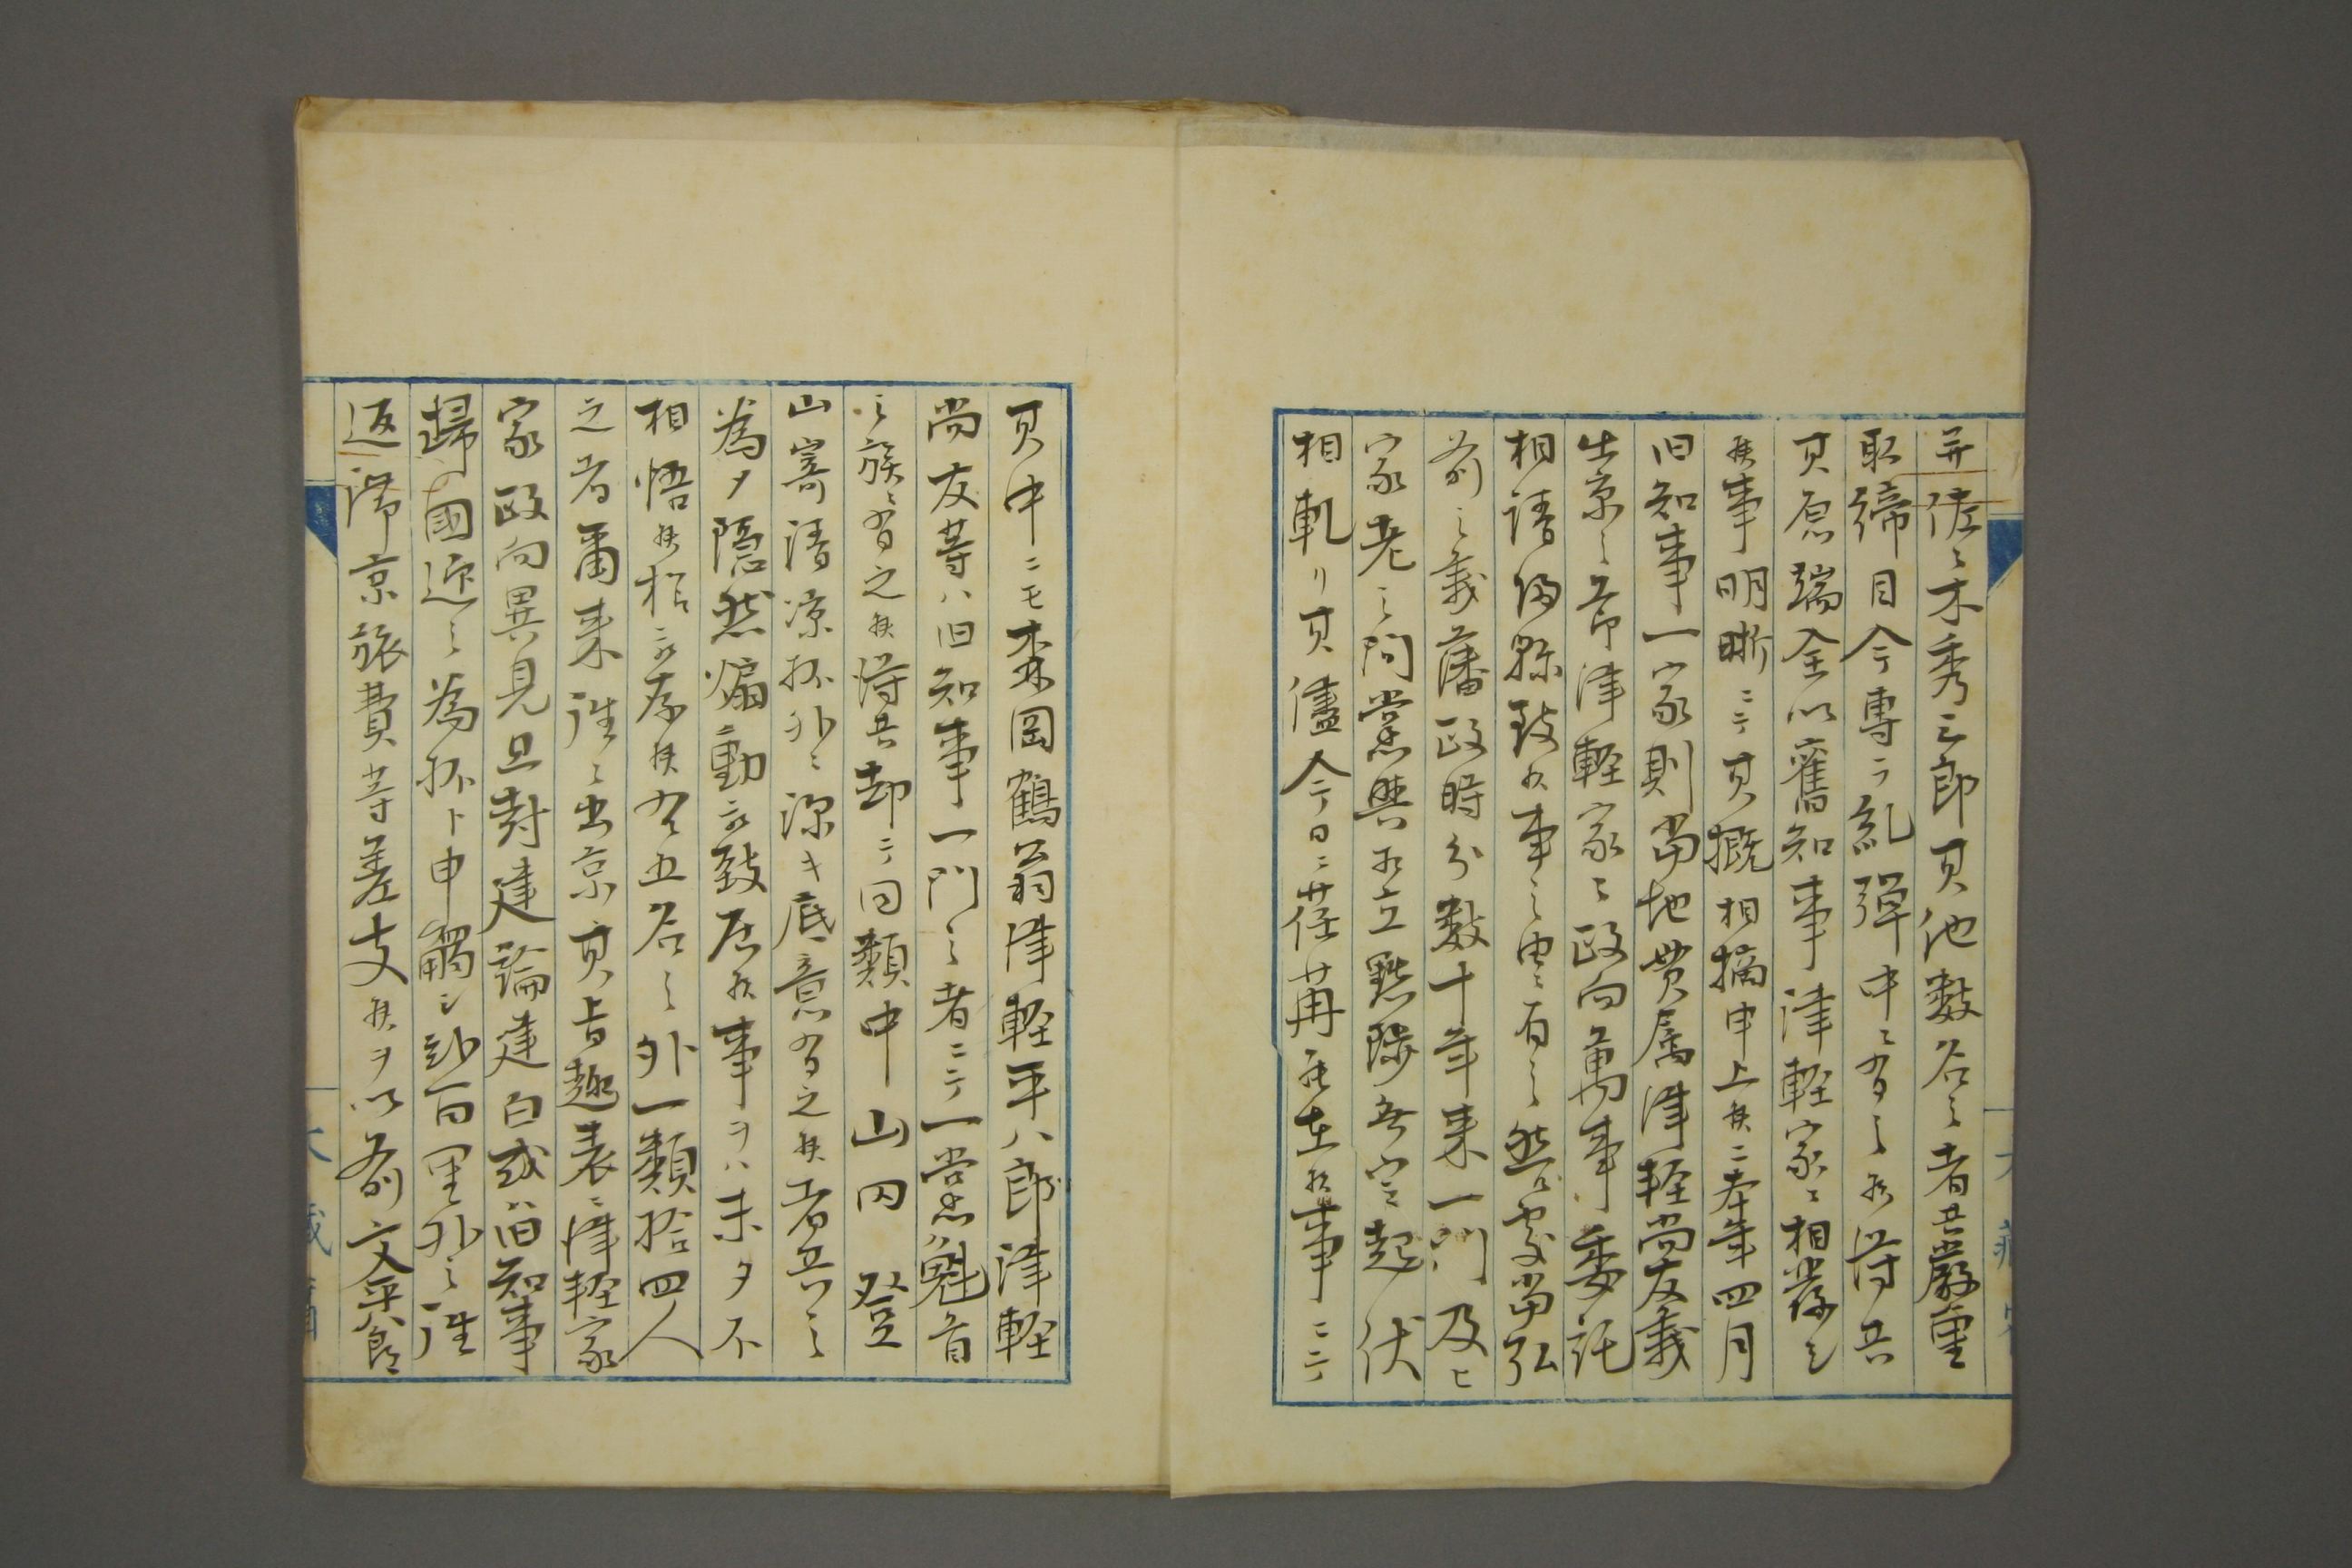 并佐々木秀三郎其他数名之者共厳重
取締目今専ラ糺弾中ニ有之候得共
其原端全以舊知事津軽家ニ相発シ
候事明晰ニテ其概相摘申上候ニ本年四月
旧知事一家則当地貫属津軽尚友義
出京之節津軽家之政向萬事委託
相請帰縣致候事之由ニ有之然処当弘
前之義藩政時分数十年来一門及ヒ
家老之間党與相立黜陟無定起伏
相軋リ其儘今日ニ荏苒罷在候事ニテ
其中ニモ森岡鶴翁津軽平八郎津軽
尚友等ハ旧知事一門之者ニテ一党ハ魁首
之族ニ有之候得共却テ同類中山田登
山崎清凉抔外ニ深キ底意有之候者共之
為メ隠然煽動被致居候事ヲハ未タ不
相悟候様被存候右五名之外一類拾四人
之者番来往々出京其旨趣表ニ津軽家
家政向異見且封建論建白或ハ旧知事
歸國迎之為抔ト申觸シ数百里外之往
返滞京旅費等差支候ヲ以前文平八郎